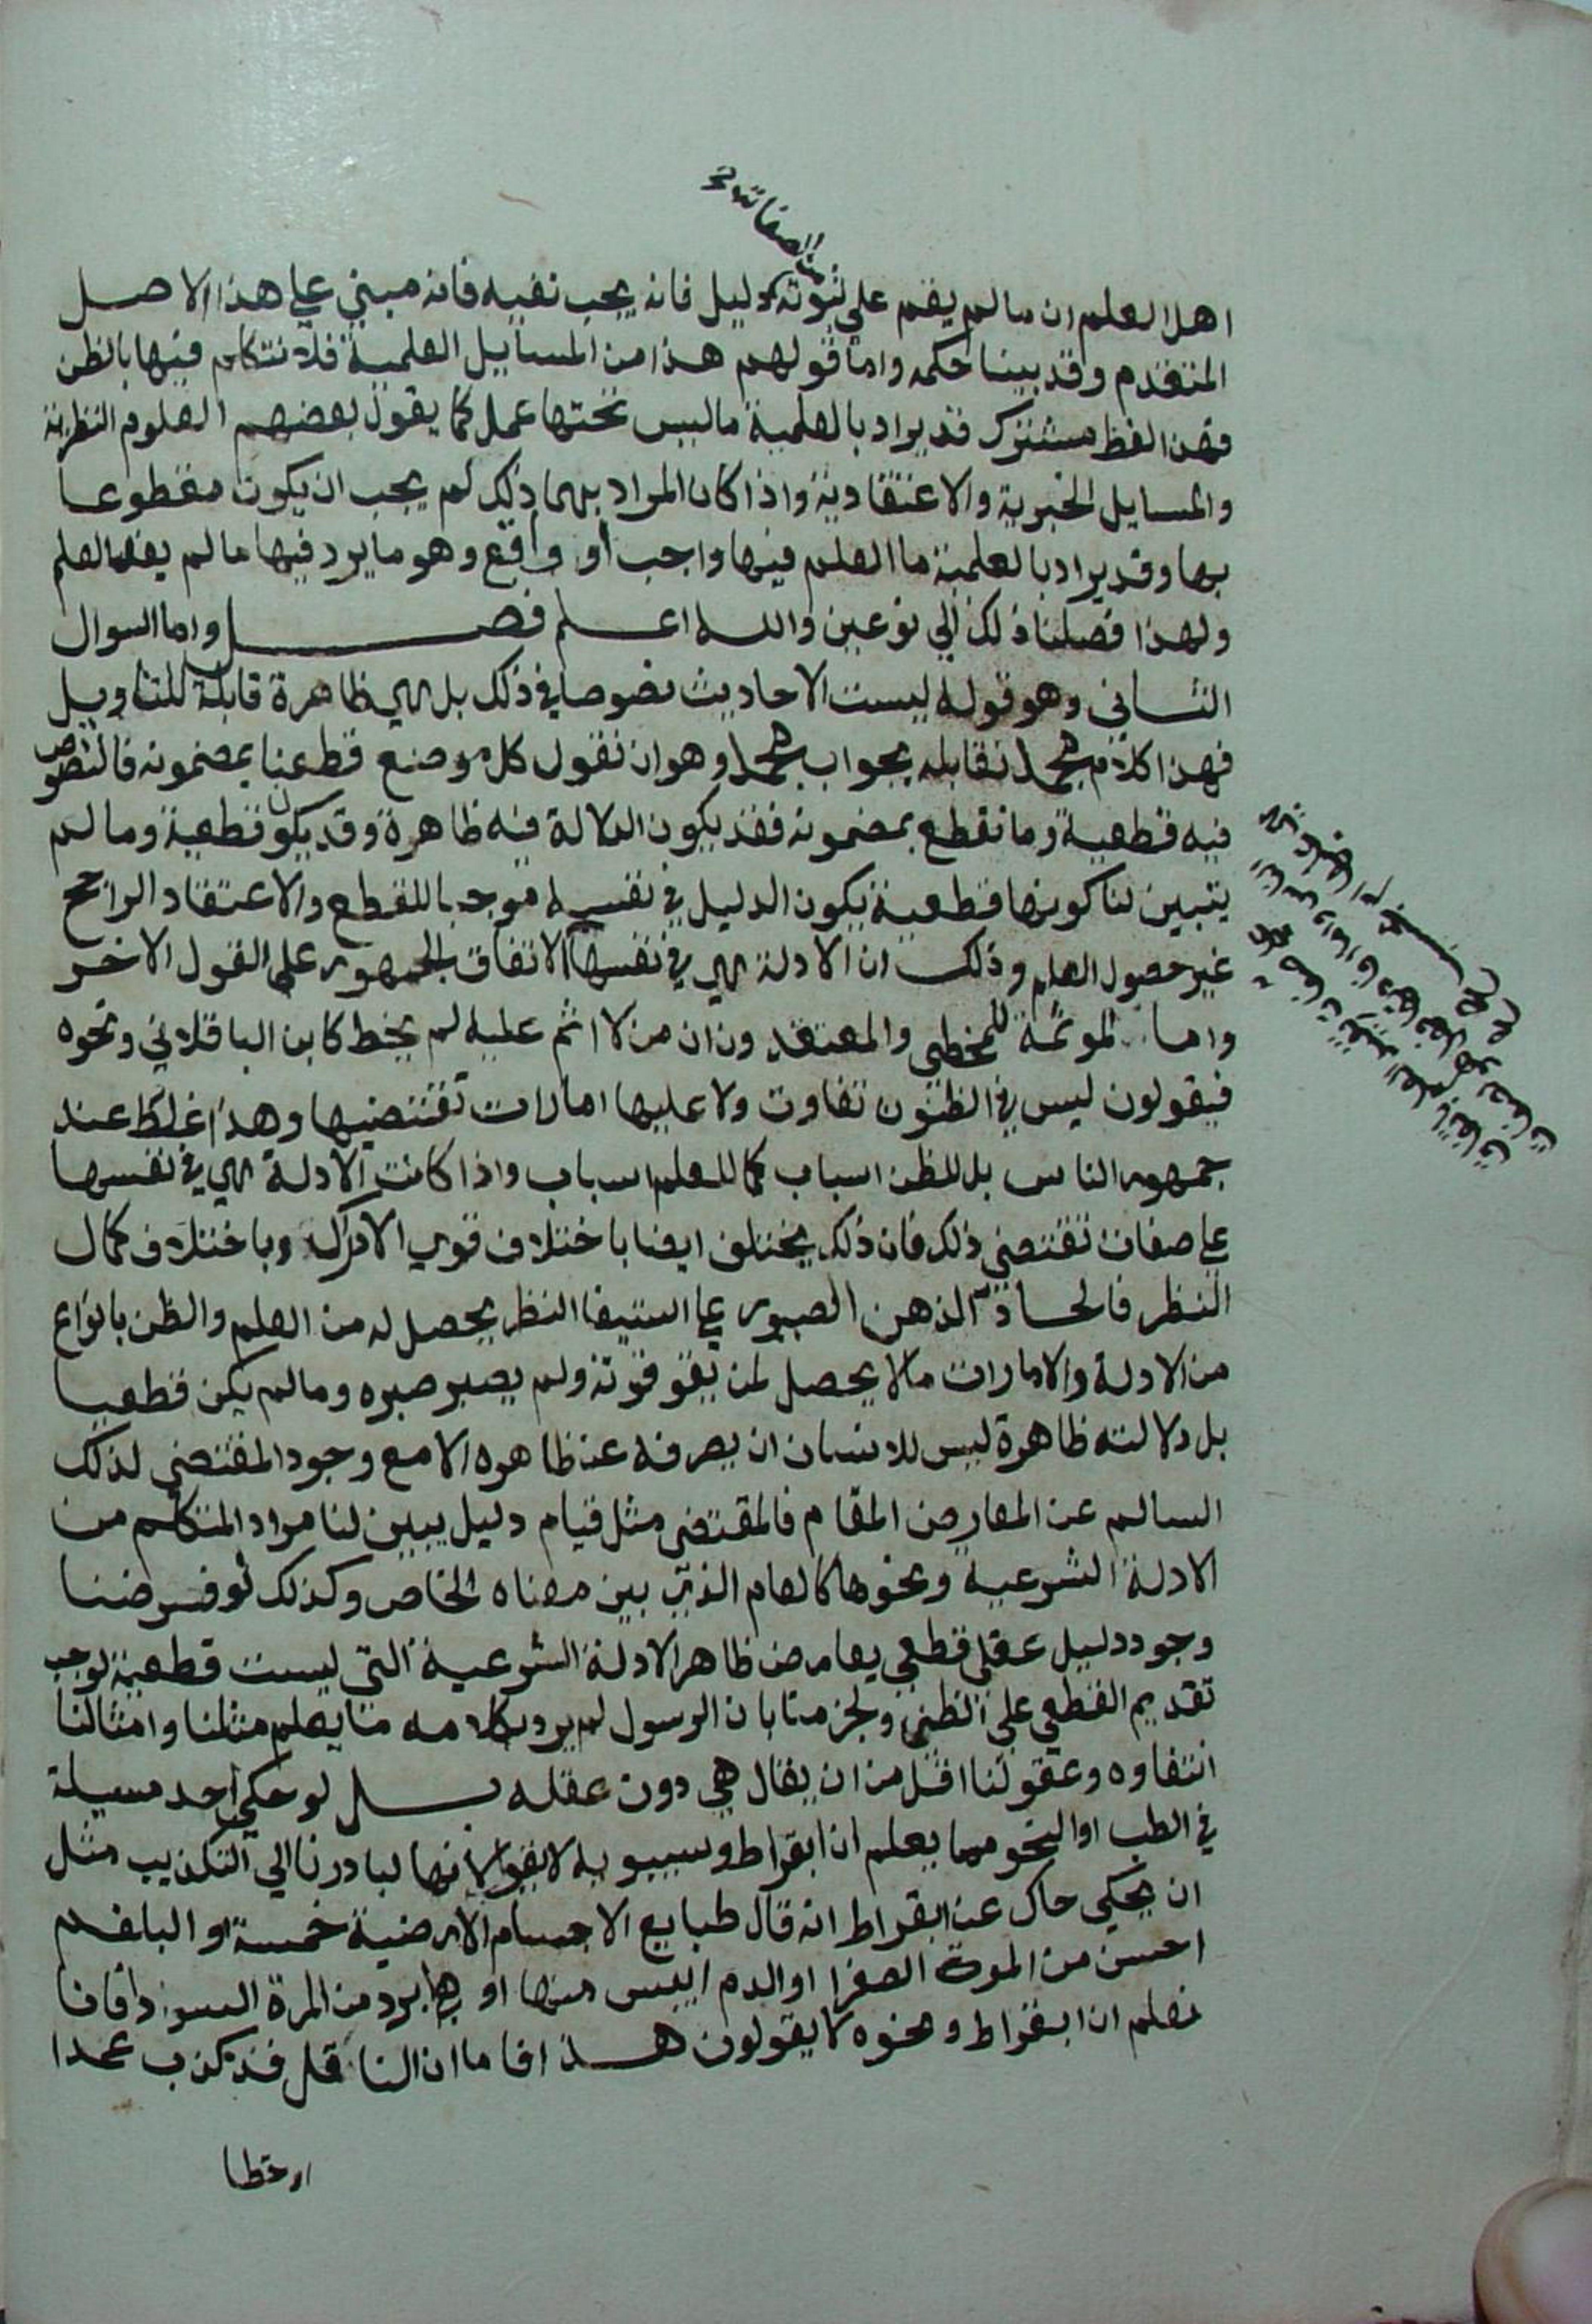 من الصفات
اهل العلم ان ما لم يقم على ثبوته دليل فانه يجب نفيه فانه مبني على هذا الاصل
المتقدم وقد بينا حكمه واما قولهم هذا من المسايل العلمية فلا نتكلم فيها بالظن
فهذا لفظ مشترك قد يراد بالعلمية ما ليس تحتها عمل كما يقول بعضهم العلوم النظرية
والمسايل الخبرية والاعتقادية واذا كان المراد بها ذلك لم يجب ان يكون مقطوعا
بها وقد يراد بالعلمية ما العلم فيها واجب او واقع وهو ما يرد فيها ما لم يفد العلم
ولهذا فصلنا ذلك الي نوعين والله اعلم فصل واما السوال
الثاني وهو قوله ليست الاحاديث نصوصا في ذلك بل هي ظاهرة قابلة للتاويل
فهذا كلام مجمل نقابله بجواب مجمل وهو ان نقول كل موضع قطعنا بمضمونه فالنصوص
فيه قطعية وما نقطع بمضمونه فقد يكون الدلالة فيه ظاهرة وقد يكون قطعية وما لم
يتبين لنا كونها قطعية يكون الدليل في نفسه موجبا للقطع والاعتقاد الراجح
غير حصول العلم وذلك ان الادلة هي في نفسها الاتفاق الجمهور على القول الاخر
واما الموثمة للمخطي والمعتقدون ان من لا اثم عليه لم يخط كابن الباقلاني ونحوه
فيقولون ليس في الظنون تفاوت ولا عليها امارات تقتضيها وهذا غلط عند
جمهور الناس بل للظن اسباب كما للعلم اسباب واذا كانت الادلة هي في نفسها
على صفات تقتضي ذلك فان ذلك يختلف ايضا باختلاف قوي الادراك وباختلاف كمال
النظر فالحاد الذهن الصبور على استيفا النظر يحصل له من العلم والظن بانواع
من الادلة والامارات ما لا يحصل لمن يقو قوته ولم يصبر صبره وما لم يكن قطعيا
بل دلالته ظاهرة ليس للانسان ان يصرفه عن ظاهره الا مع وجود المقتضي لذلك
السالم عن المعارض المقام فالمقتضي مثل قيام دليل يبين لنا مراد المتكلم من
الادلة الشرعية ونحوها كالعام الذي بين معناه الخاص وكذلك لو فرضنا
وجود دليل عقلي قطعي يعارض ظاهر الادلة الشرعية التي ليست قطعية لوجب
تقديم القطعي على الظني ولجزمنا بان الرسول لم يرد بكلامه ما يعلم مثلنا وامثالنا
انتفاوه وعقولنا اقل من ان يقال هي دون عقله بل لو حكي احد مسيلة
في الطب او النحو مما يعلم ان ابقراط وسيبويه لا يقولانها لبادرنا الي التكذيب مثل
ان يحكي حاك عن ابقراط انه قال طبايع الاجسام الارضية خمسة او البلغم
احسن من المرة الصفرا او الدم ايبس منها او ابرد من المرة السودا فانا
نعلم ان ابقراط ونحوه لا يقولون هذا فاما ان الناقل قد كذب عمدا
او خطا